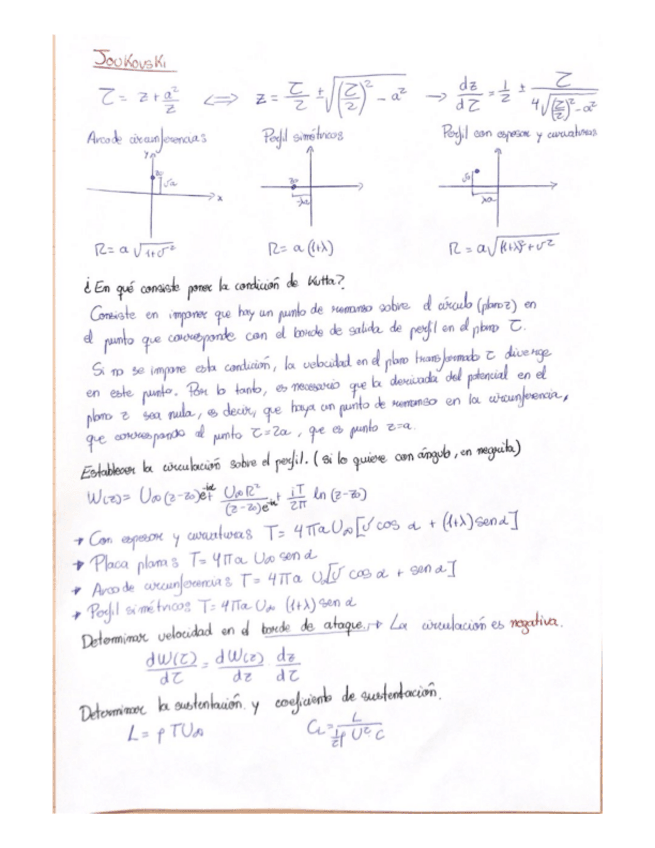 Joukovski
τ = z + a²/z <=> z = τ/2 ± √((τ/2)² - a²) → dz/dτ = 1/2 ± τ/(4√((τ/2)² - a²))
Arco de circunferencia: Perfil simétrico: Perfil con espesor y curvatura:
y x z₀ υa z₀ λa υa λa
R = a √(1+υ²) R = a (1+λ) R = a√((1+λ)²+υ²)
¿En qué consiste poner la condición de Kutta?
Consiste en imponer que hay un punto de remanso sobre el círculo (plano z) en
el punto que corresponde con el borde de salida de perfil en el plano τ.
Si no se impone esta condición, la velocidad en el plano transformado τ diverge
en este punto. Por lo tanto, es necesario que la derivada del potencial en el
plano z sea nula, es decir, que haya un punto de remanso en la circunferencia,
que corresponda al punto τ=2a, que es punto z=a.
Establecer la circulación sobre el perfil. (si lo quiere con ángulo, en negrita)
W(z) = U∞ (z-z₀)e^(-iα) + U∞R²/((z-z₀)e^(-iα)) + iT/2π ln (z-z₀)
→ Con espesor y curvatura: T = 4πa U∞[υ cos α + (1+λ) sen α]
→ Placa plana: T = 4πa U∞ sen α
→ Arco de circunferencia: T = 4πa U∞[υ cos α + sen α]
→ Perfil simétrico: T = 4πa U∞ (1+λ) sen α
Determinar velocidad en el borde de ataque. → La circulación es negativa.
dW(τ)/dτ = dW(z)/dz · dz/dτ
Determinar la sustentación y coeficiente de sustentación.
L = ρ T U∞ CL = L/(½ρ U² c)